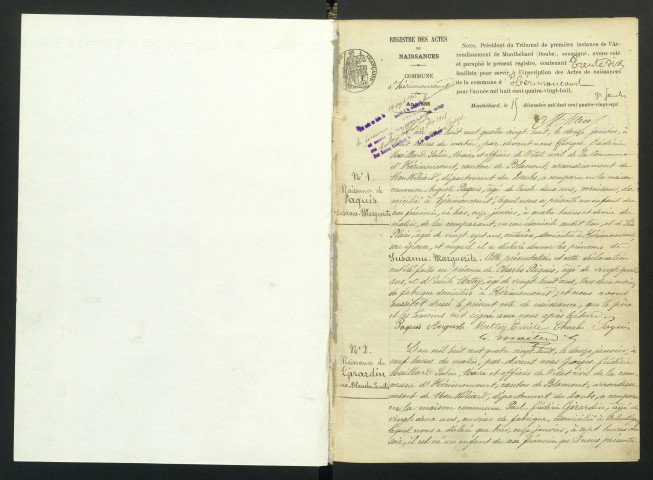 REGISTRE DES ACTES
DE
NAISSANCES
COMMUNE
d'Hérimoncourt
Année
Nous, Président du Tribunal de première instance de l'Ar-
rondissement de Montbéliard (Doubs), soussigné, avons coté
et paraphé le présent registre, contenant
feuillets pour servir à l'inscription des Actes de naissances
de la commune d'Hérimoncourt
pour l'année mil huit cent quatre-vingt-huit.
Montbéliard, le 15 décembre mil huit cent quatre-vingt-sept
L'an mil huit cent quatre vingt huit, le douze janvier, à
heures du matin, par devant nous Georges, Frédéric
Maillard Salin, Maire et officier de l'état civil de la commune
d'Hérimoncourt, canton de Blamont, arrondissement de
Montbéliard, département du Doubs, a comparu en la maison
commune Auguste Paquis, âgé de trente deux ans,
domicilié à Hérimoncourt, lequel nous a présenté un enfant du
sexe féminin, né hier, onze janvier, à quatre heures et demie du
matin, de lui comparant, en son domicile, et de
âgée de vingt sept ans, domiciliée à Hérimoncourt,
son épouse, et auquel il a déclaré donner les prénoms de
Susanne Marguerite. Cette présentation et cette déclaration
ont été faites en présence de Charles Paquis, âgé de vingt
ans, et d'Emile âgé de vingt huit ans, tous deux
de fabrique domiciliés à Hérimoncourt, et nous avons
aussitôt dressé le présent acte de naissance, que le père
et les témoins ont signé avec nous après lecture.
Paquis Auguste Emile Charles Paquis
G. Maillard
N° 1.
Naissance de
Paquis
Susanne Marguerite
N° 2.
Naissance de
Girardin
L'an mil huit cent quatre vingt huit, le douze janvier, à
neuf heures du matin, par devant nous Georges Frédéric
Maillard Salin, Maire et officier de l'état civil de la com-
mune d'Hérimoncourt, canton de Blamont, arrondisse-
ment de Montbéliard, département du Doubs, a comparu
en la maison commune Paul Frédéric Girardin, âgé de
vingt deux ans, ouvrier de fabrique, domicilié à
lequel nous a déclaré que hier, onze janvier, à sept heures du
soir, il est né un enfant du sexe féminin qu'il nous présente